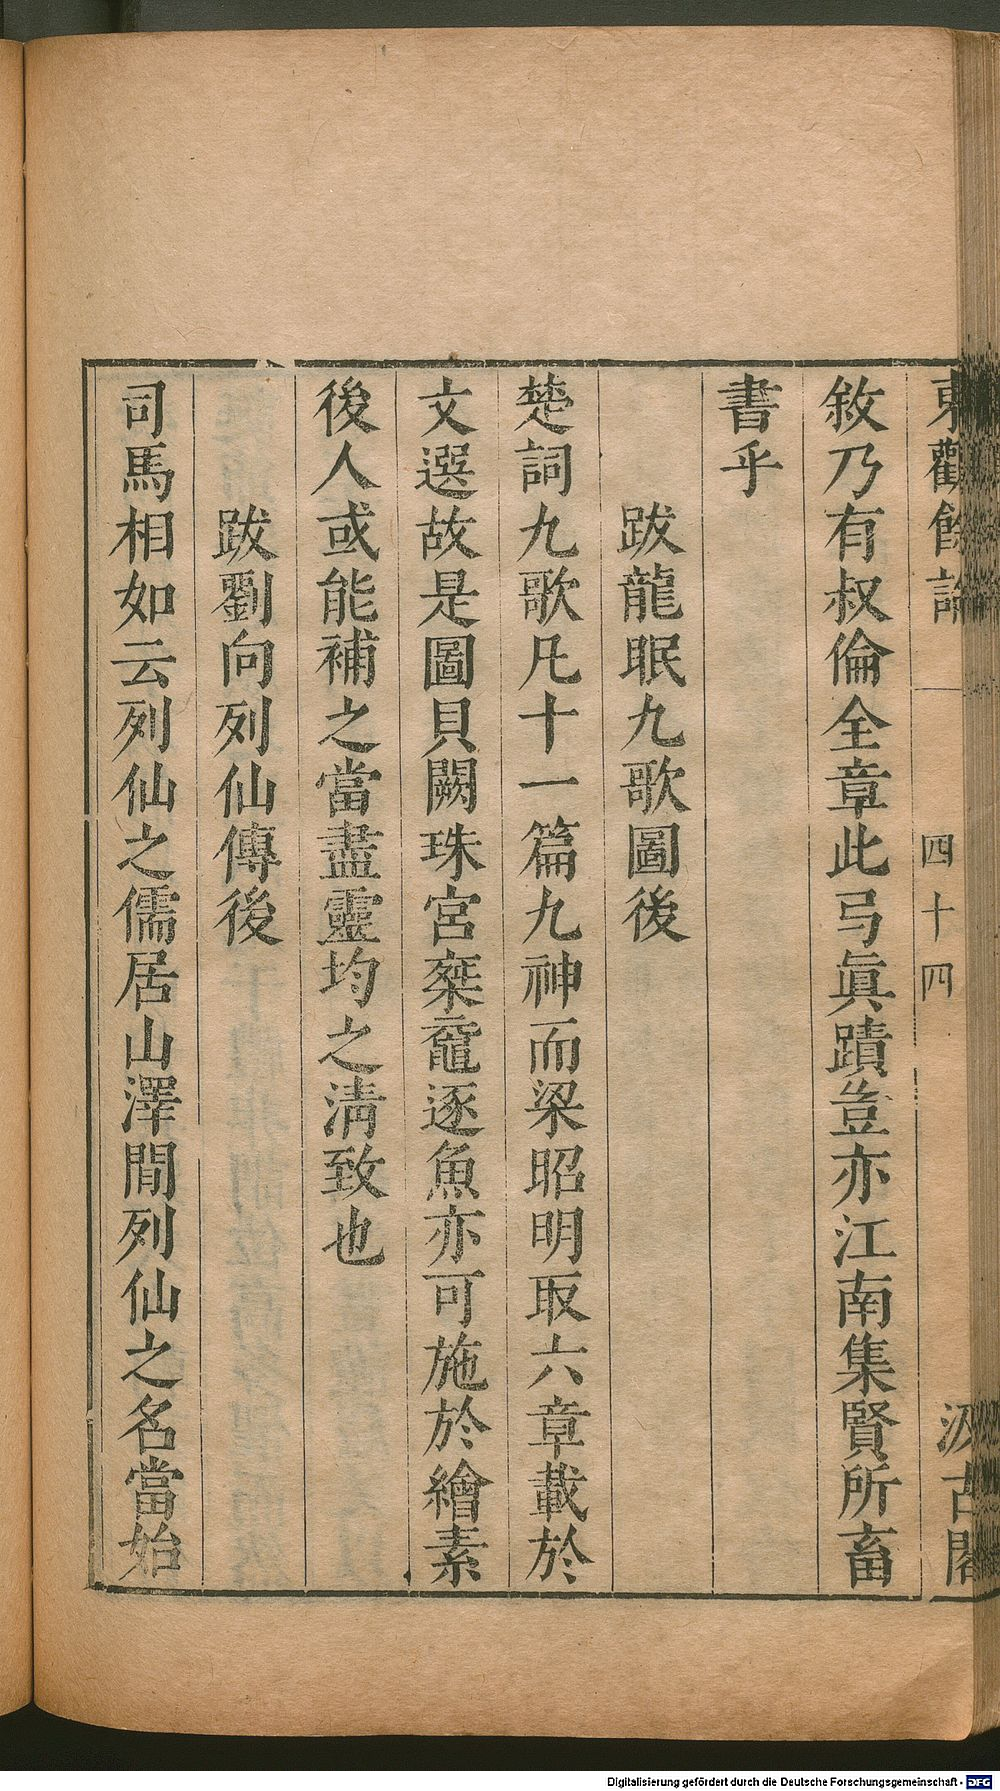 東觀餘論
四十四
汲古閣
敘乃有叔倫全章此弓眞蹟豈亦江南集賢所畜
書乎
跋龍眠九歌圖後
楚詞九歌凡十一篇九神而梁昭明取六章載於
文選故是圖貝闕珠宮椉黿逐魚亦可施於繪素
後人或能補之當盡靈均之淸致也
跋劉向列仙傳後
司馬相如云列仙之儒居山澤閒列仙之名當始
Digitalisierung gefördert durch die Deutsche Forschungsgemeinschaft - DFG